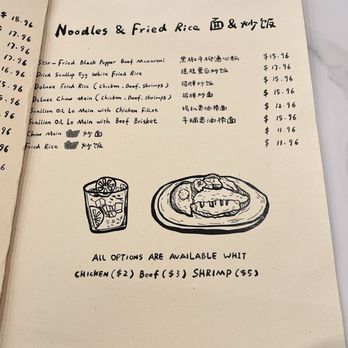 $ 18.96
17.96
17.96
Noodles & Fried Rice 面 & 炒饭
Stir-Fried Black Pepper Beef Macaroni 黑椒牛柳通心粉 $ 15.96
Dried Scallop Egg White Fried Rice 瑶柱蛋白炒饭 $ 17.96
Deluxe Fried Rice (Chicken. Beef. Shrimps) 招牌炒饭 $ 15.96
Deluxe Chow Mein (Chicken. Beef. Shrimps) 招牌炒面 $ 15.96
Scallion Oil Lo Mein with Chicken Fillet 葱油捞面 $ 12.96
Scallion Oil Lo Mein with Beef Brisket 牛腩葱油捞面 $ 15.96
Chow Mein 炒面 $ 11.96
Fried Rice 炒饭 $ 11.96
ALL OPTIONS ARE AVAILABLE WHIT
CHICKEN ($2) Beef ($3) SHRIMP ($5)